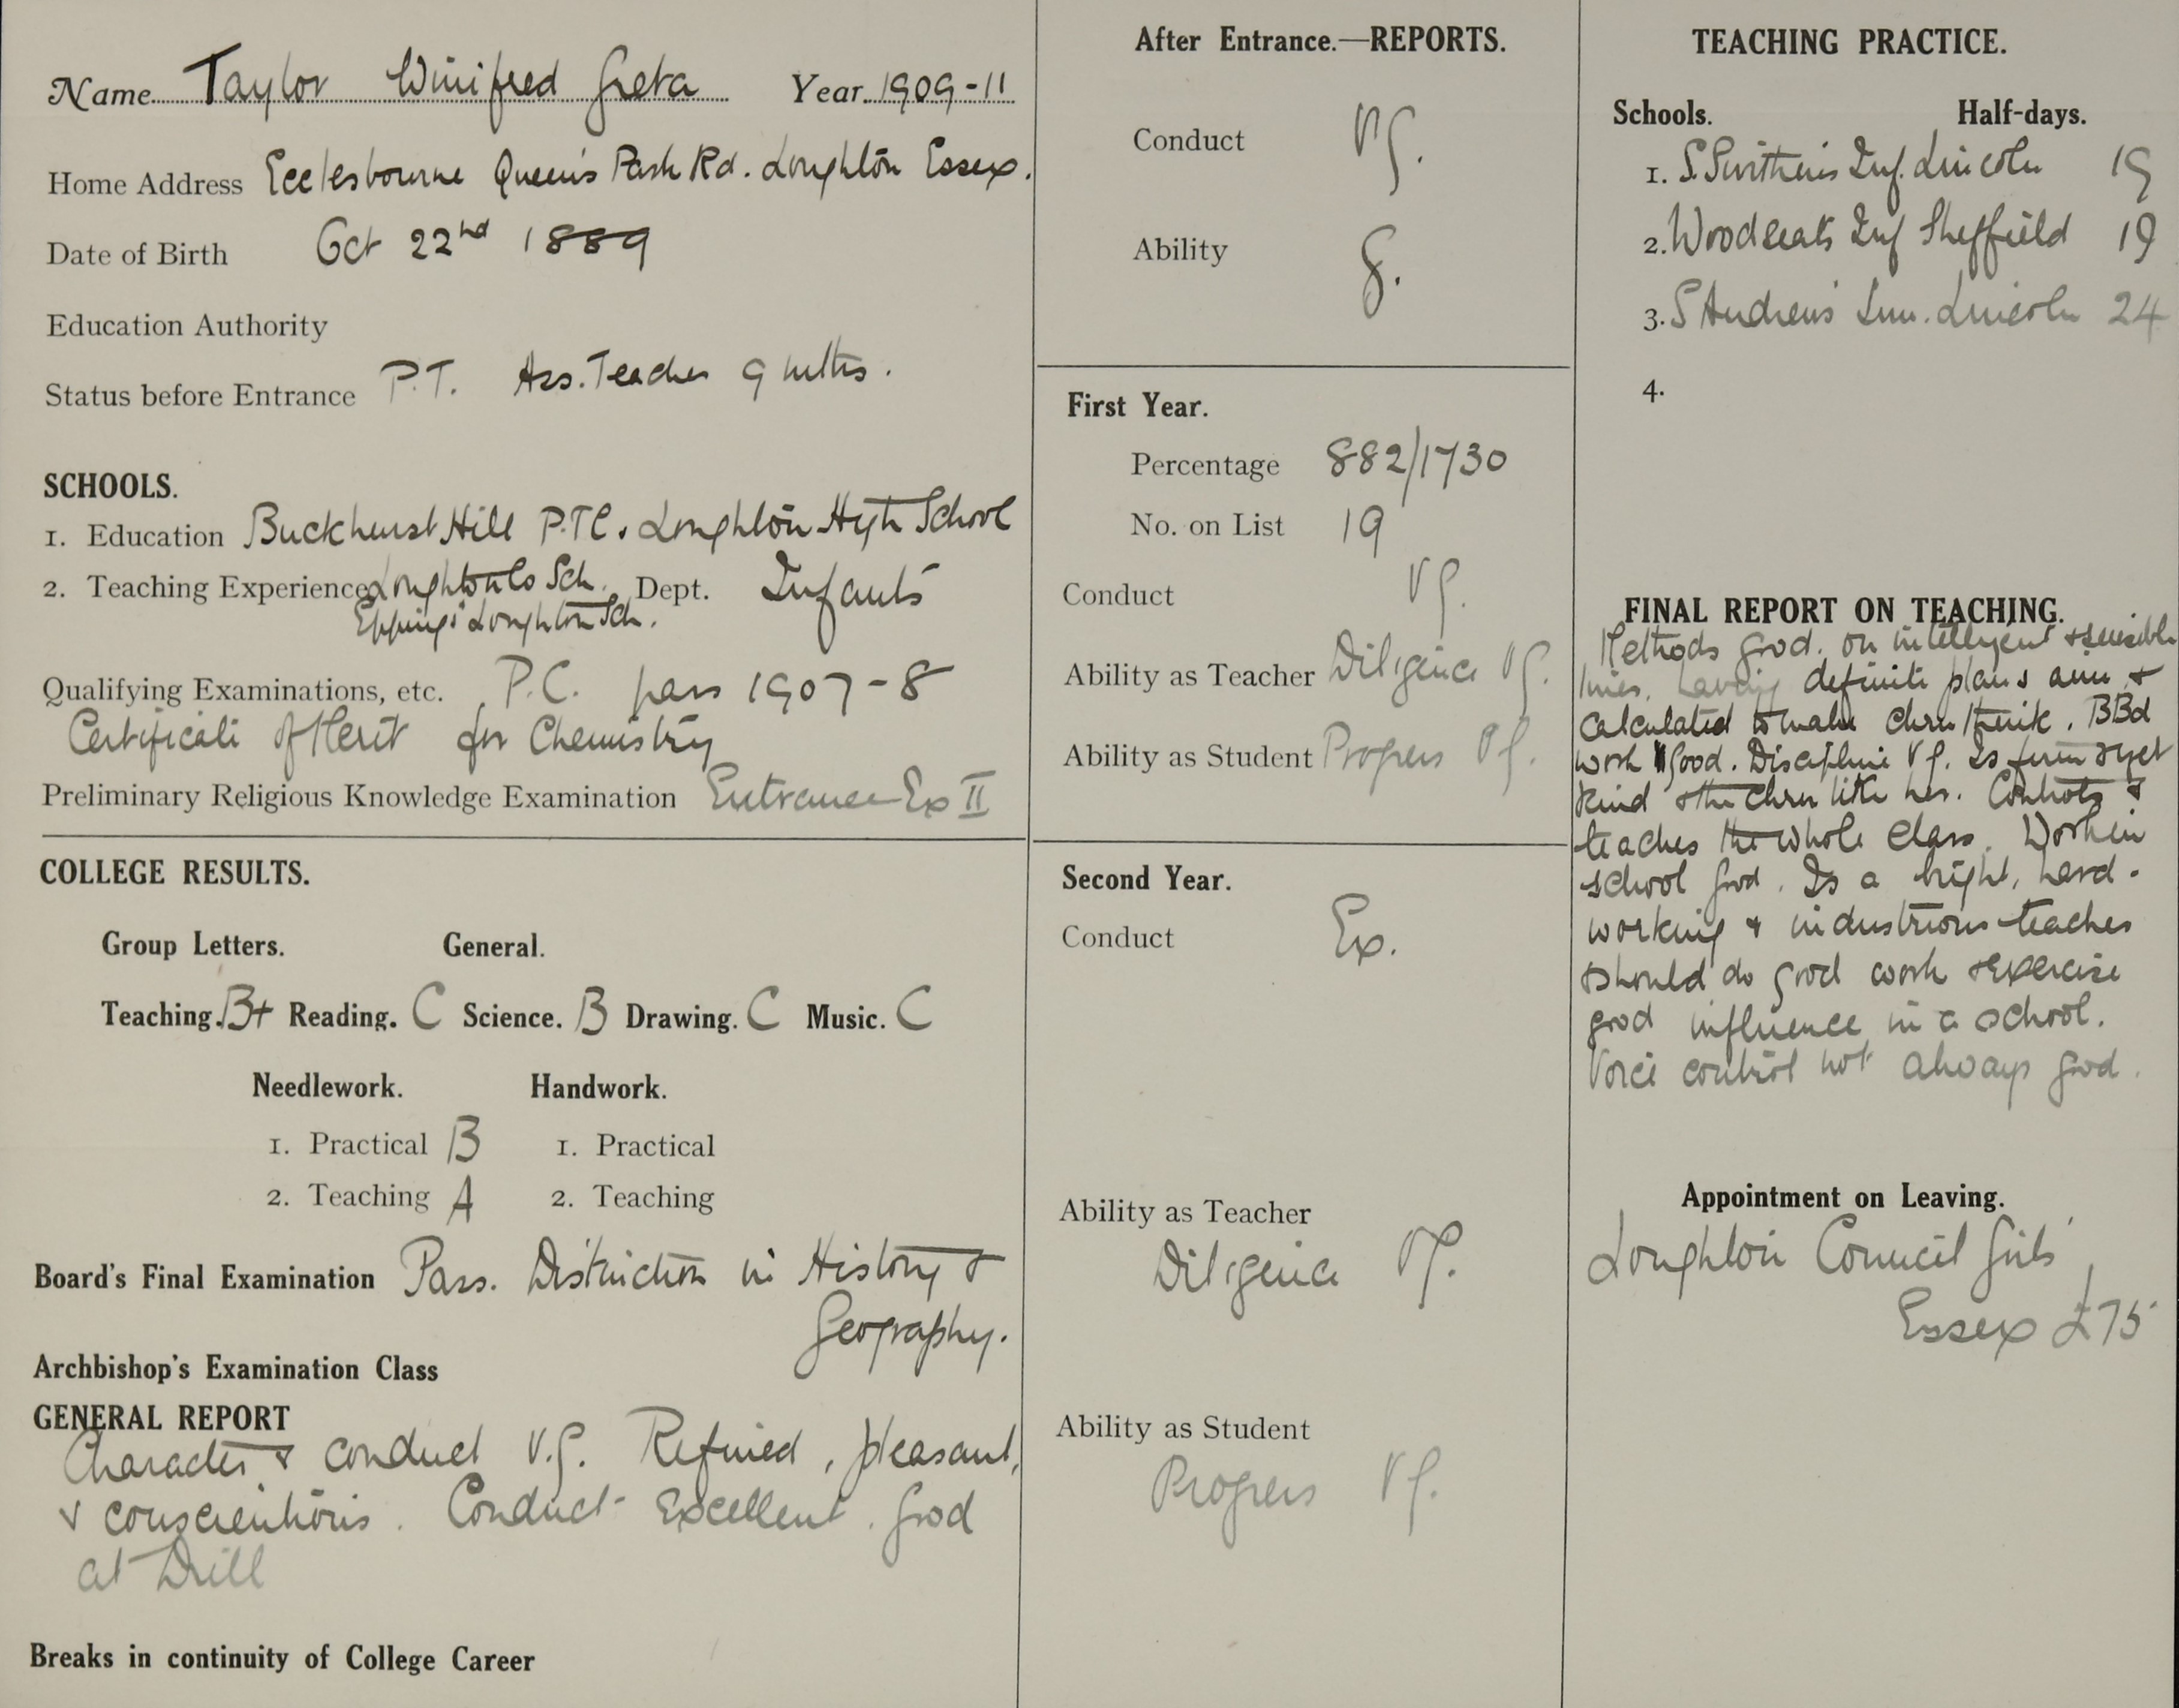 Name Taylor Winifred Greta Year 1909-11
Home Address Ecclesbourne Queen's Park Rd. Loughton Essex.
Date of Birth Oct 22nd 1889
Education Authority
Status before Entrance P.T. Ass. Teacher 9 mths.
SCHOOLS.
1. Education Buckhurst Hill P.T.C. Loughton High School
2. Teaching Experience Loughton Co Sch. Dept. Infants
Epping & Loughton Sch.
Qualifying Examinations, etc. P.C. pass 1907-8
Certificate of Merit for Chemistry
Preliminary Religious Knowledge Examination Entrance Ex II
COLLEGE RESULTS.
Group Letters. General.
Teaching. B+ Reading. C Science. B Drawing. C Music. C
Needlework. Handwork.
1. Practical B 1. Practical
2. Teaching A 2. Teaching
Board's Final Examination Pass. Distinction in History &
Geography.
Archbishop's Examination Class
GENERAL REPORT
Character & conduct V.g. Refined, pleasant,
& conscientious. Conduct Excellent. Good
at Drill
Breaks in continuity of College Career
After Entrance.—REPORTS.
Conduct Vg.
Ability g.
First Year.
Percentage 882/1730
No. on List 19
Conduct Vg.
Ability as Teacher Diligence Vg.
Ability as Student Progress Vg.
Second Year.
Conduct Ex.
Ability as Teacher
Diligence Vg.
Ability as Student
Progress Vg.
TEACHING PRACTICE.
Schools. Half-days.
1. S. Swithin's Inf. Lincoln 19
2. Woodseats Inf Sheffield 19
3. S Andrew's Jun. Lincoln 24
4.
FINAL REPORT ON TEACHING.
Methods good. on intelligent & sensible
lines. having definite plans aim &
calculated to make chrn think. BBd
work good. Discipline Vg. Is firm & yet
kind & the chrn like her. Controls &
teaches the whole class. Work in
school good. Is a bright, hard-
working & industrious teacher
should do good work & exercise
good influence in a school.
Voice control not always good.
Appointment on Leaving.
Loughton Council Girls'
Essex £75